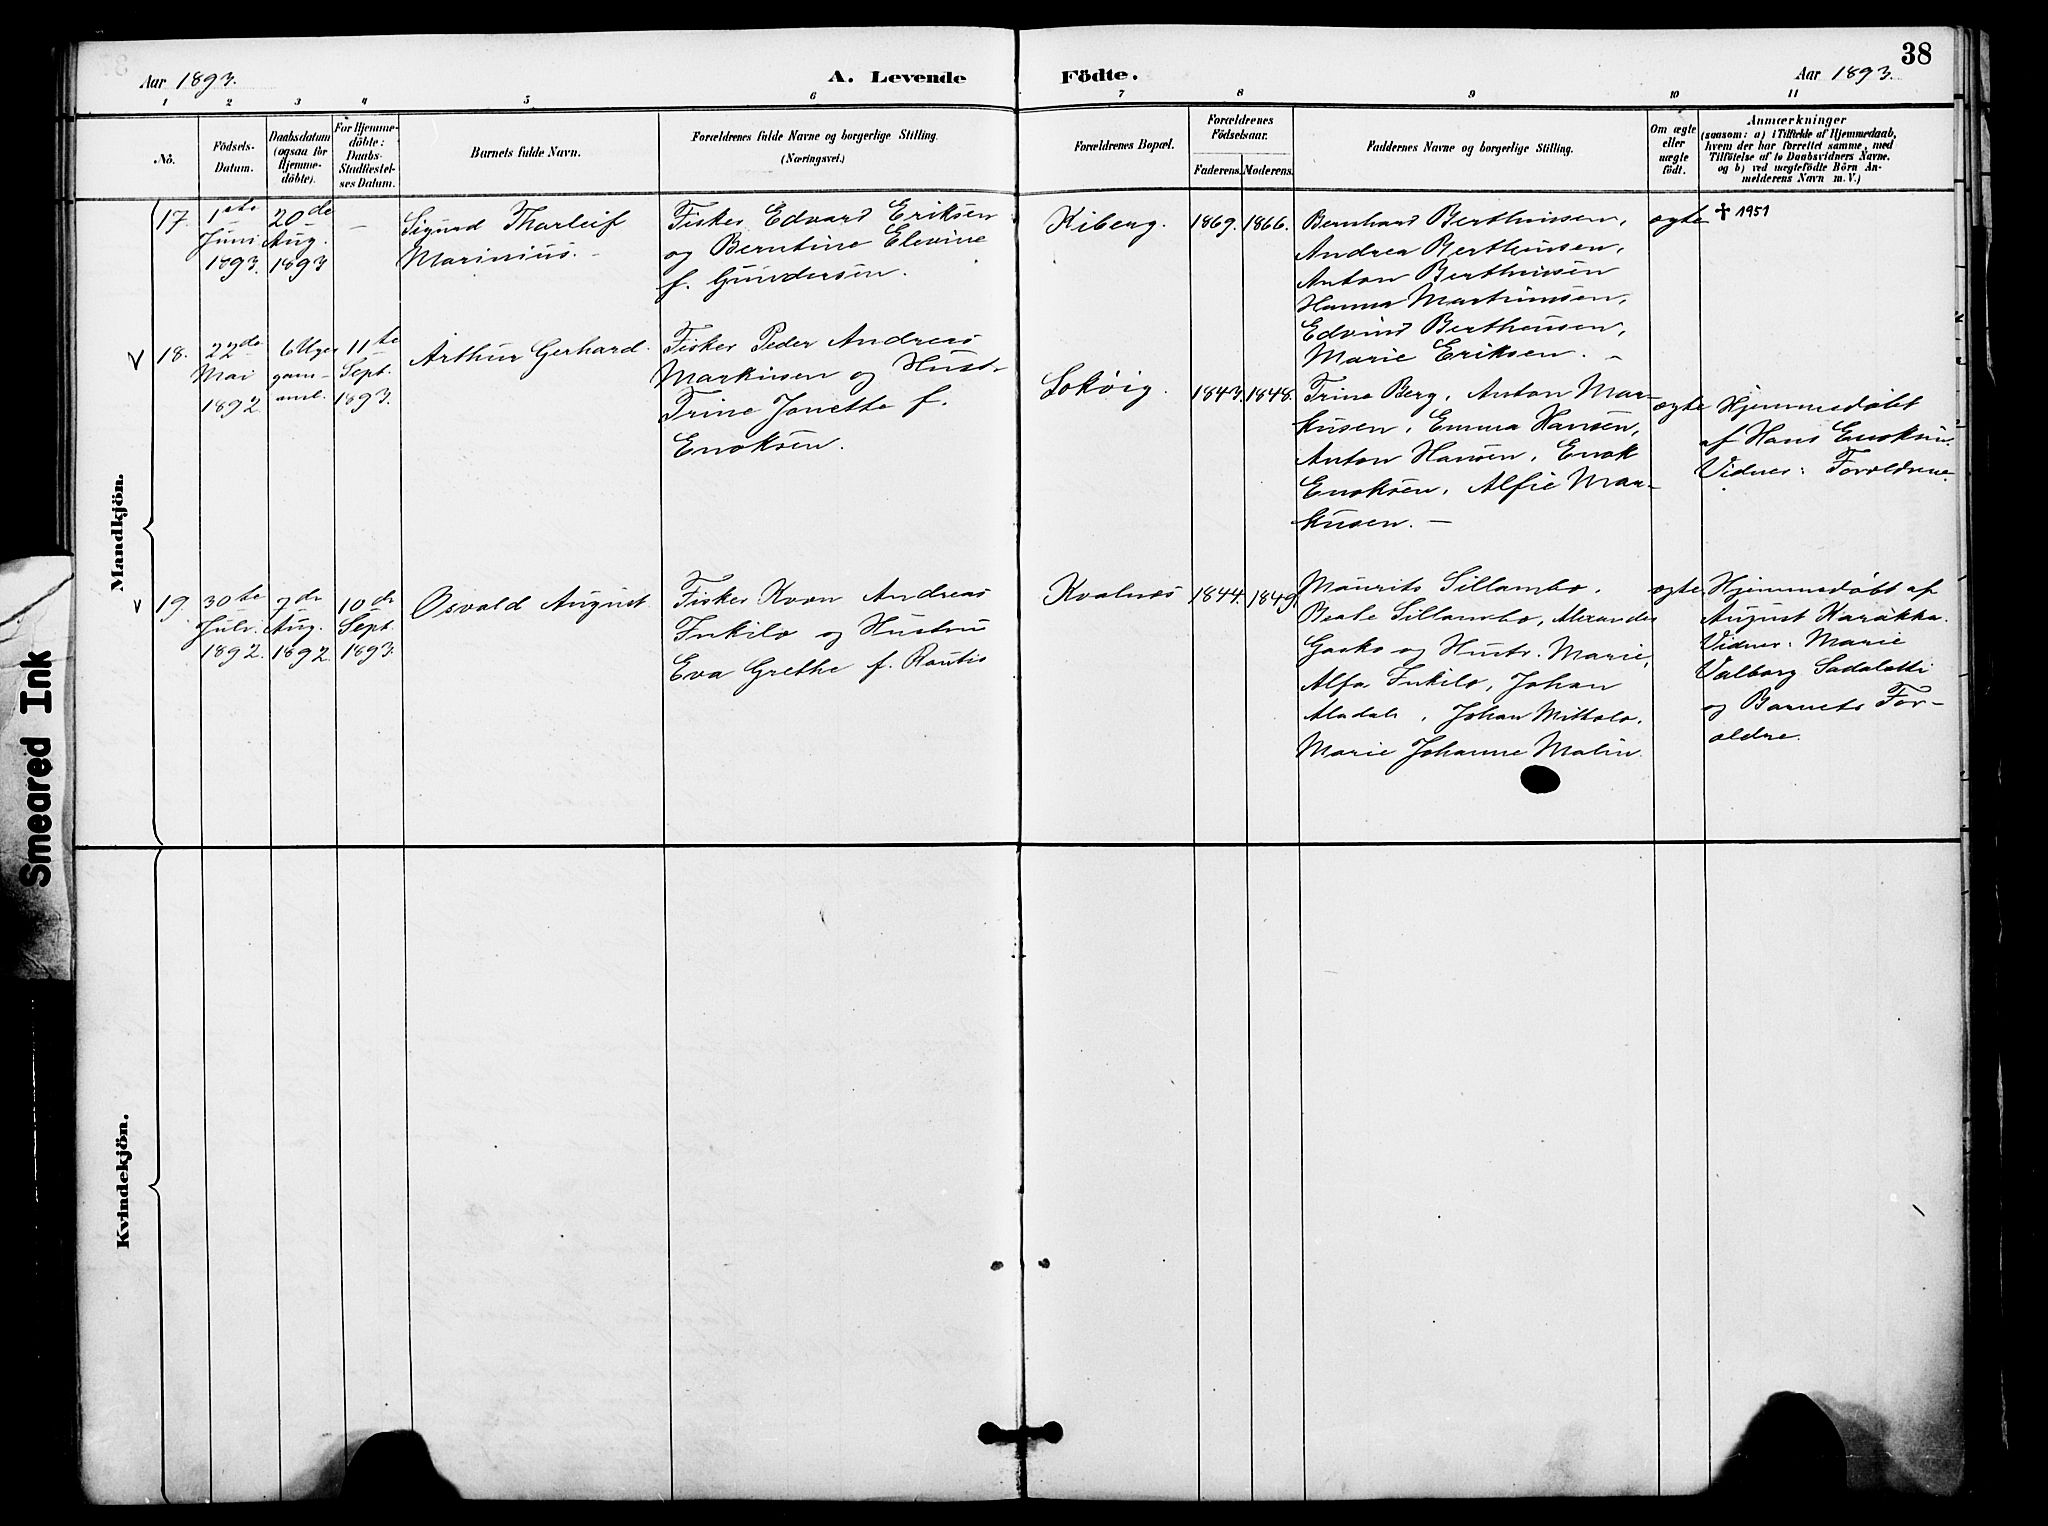 38
Aar 1893.
A. Levende Födte.
Aar 1893.
1 2 3 4 5 6 7 8 9 10 11
Nô.
Födsels-
Datum.
Daabsdatum
(ogsaa for
Hjemme-
döbte).
For Hjemme-
döbte:
Daabs-
Stadfæstel-
ses Datum.
Barnets fulde Navn.
Forældrenes fulde Navne og borgerlige Stilling.
(Næringsvei.)
Forældrenes Bopæl.
Forældrenes
Födselsaar.
Faderens. Moderens.
Faddernes Navne og borgerlige Stilling.
Om ægte
eller
uægte
födt.
Anmærkninger
(saasom: a) i Tilfælde af Hjemmedaab,
hvem der har forrettet samme, med
Tilföielse af to Daabsvidners Navne.
og b) ved uægtefödte Börn An-
melderens Navn m. V.)
Mandkjön.
17.
1ste
Juni
1893.
20de
Aug.
1893
–
Sigurd Tharleif
Marinius. –
Fisker Edvard Eriksen
og Berntine Elevine
f. Gundersen.
Kiberg.
1869. 1866.
Bernhard Berthinsen,
Andrea Berthinsen,
Anton Berthinsen
Hanna Martinusen,
Edvind Berthinsen,
Marie Eriksen. –
ægte
✝ 1951
V 18.
22de
Mai
1892.
6 Uger
gam-
mel.
11te
Sept.
1893.
Arthur Gerhard.
Fisker Peder Andreas
Markusen og Hust-
Trine Jonette f.
Enoksen.
1843. 1848.
Trine Berg, Anton Mar-
kusen, Emma Hansen,
Anton Hansen, Enok
Enoksen, Alfie Mar-
kusen. –
ægte
Hjemmedøbt
af Hans Enoksen.
Vidner: Forældrene.
V 19.
30te
Juli
1892.
7de
Aug.
1892.
10de
Sept.
1893.
Osvald August
Fisker Kven Andreas
Inkilo og Hustru
Eva Grethe f. Rautio
Kvalnes
1844. 1849.
Maurits Sillambo,
Beate Sillambo, Alexander
Gasko og Hustr. Marie,
Alfa Inkilo, Johan
Johan Mittalo,
Marie Johanne Malin.
ægte.
Hjemmedøbt af
August Karakka.
Vidner: Marie
Valborg Sadalatti
og Barnets For-
ældre.
Kvindekjön.
Smeared Ink